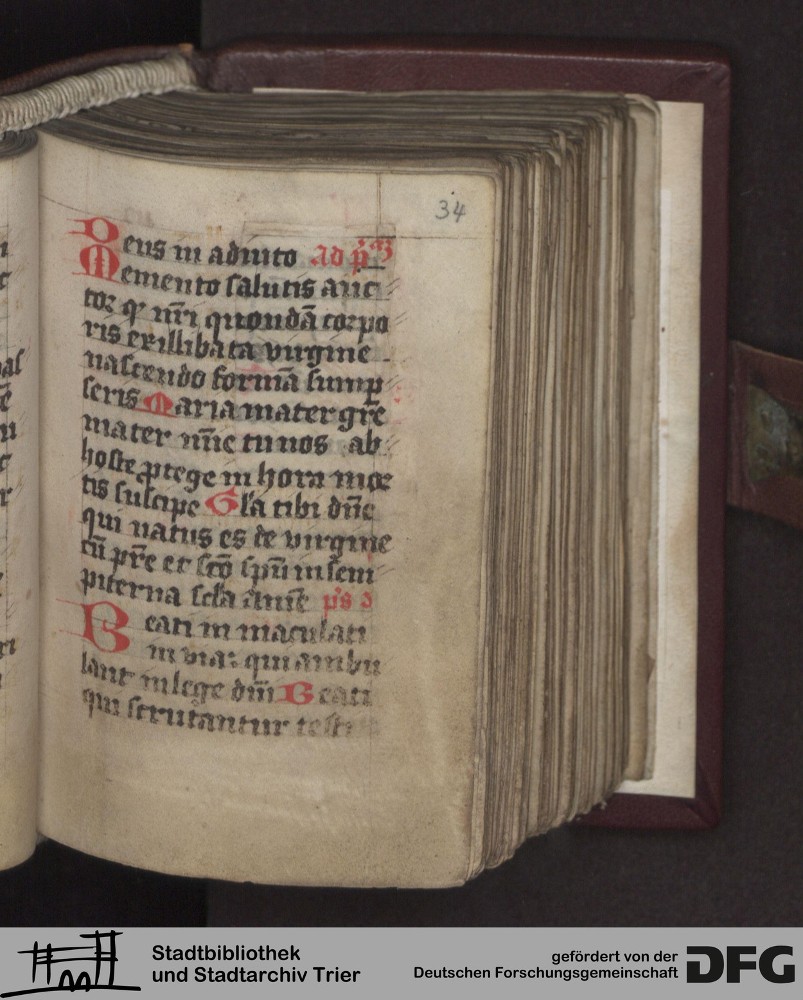 34
Deus in adiuto ad p̄ᵃᵐ
Memento salutis auc
tor qͥ nr̄i quondā corpo
ris ex illibata virgine
nascendo formā sump
seris Maria mater gr̄e
mater mīe tu nos ab
hoste ꝓtege in hora mor
tis suscipe Gl̄a tibi dn̄e
qui natus es de virgine
cū pr̄e et sc̄o spū in sem
piterna sc̄la amē ps
Beati in maculati
in via: qui ambu
lant in lege dn̄i Beati
qui scrutantur testi
Stadtbibliothek
und Stadtarchiv Trier
gefördert von der
Deutschen Forschungsgemeinschaft
DFG